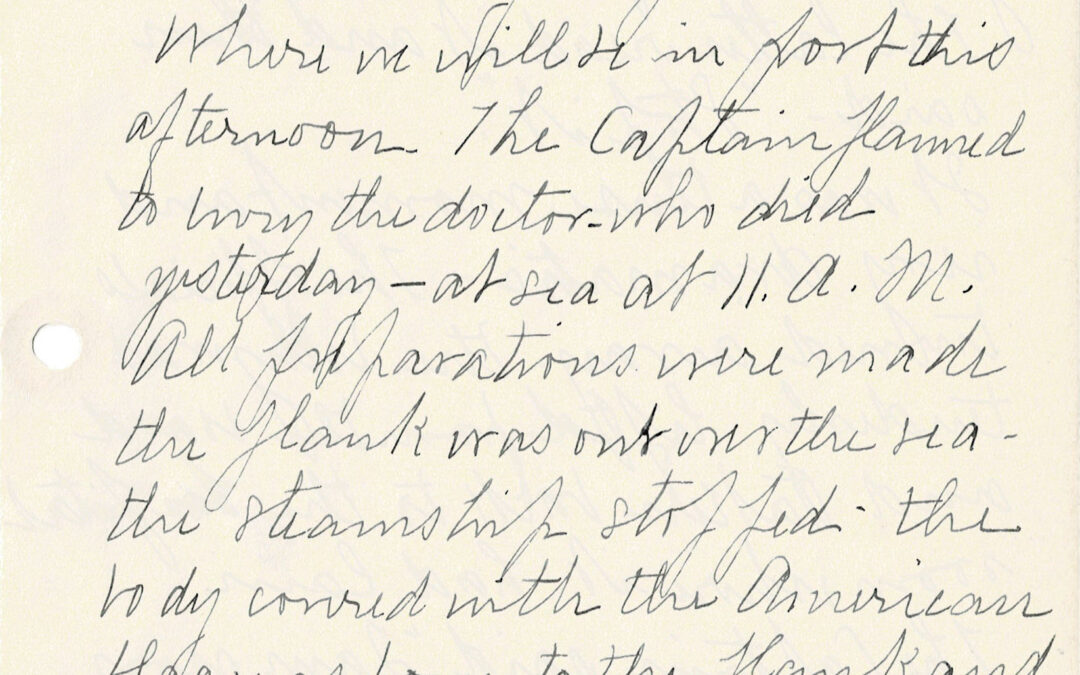 Where we will be in port this
afternoon. The Captain planned
to bury the doctor - who died
yesterday - at sea at 11. A. M.
All preparations were made
the plank was out over the sea -
the steamship stopped - the
body covered with the American
to the plank and